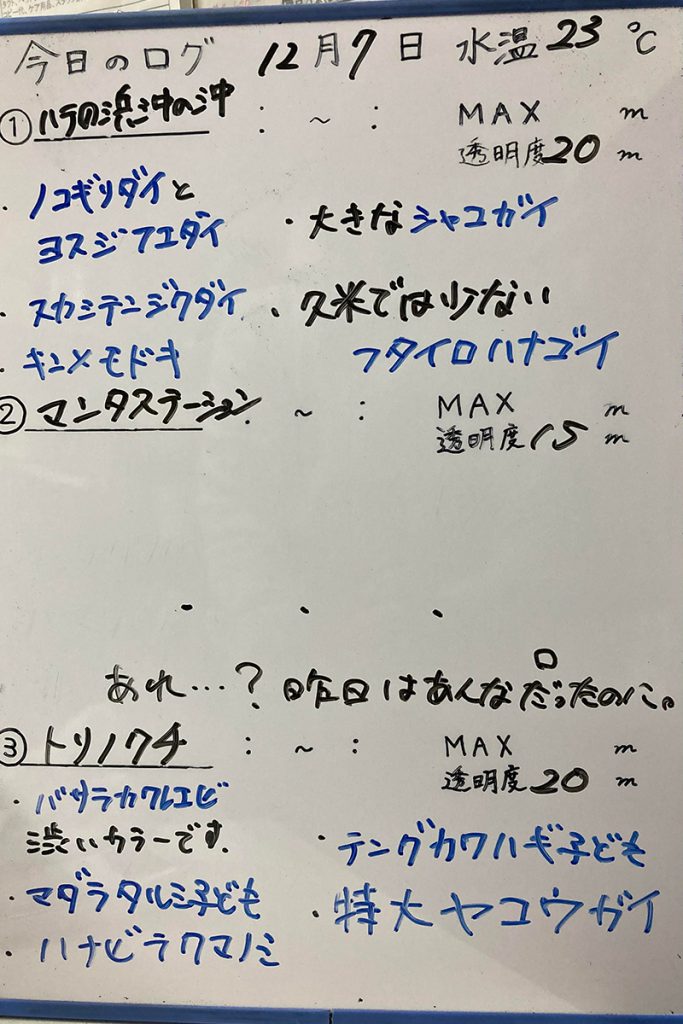 今日のログ 12月7日 水温23℃
①ハテの浜沖の沖 : ~ : MAX m
透明度20m
・ノコギリダイと
ヨスジフエダイ
・大きなシャコガイ
・スカシテンジクダイ
・キンメモドキ
・久米では少ない
フタイロハナゴイ
②マンタステーション : ~ : MAX m
透明度15m
・ ・ ・
あれ…?昨日はあんなだったのに。
ロ
③トリノクチ : ~ : MAX m
透明度20m
・バサラカクレエビ
渋いカラーです.
・マダラタルミ子ども
・ハナビラクマノミ
・テングカワハギ子ども
・特大ヤコウガイ